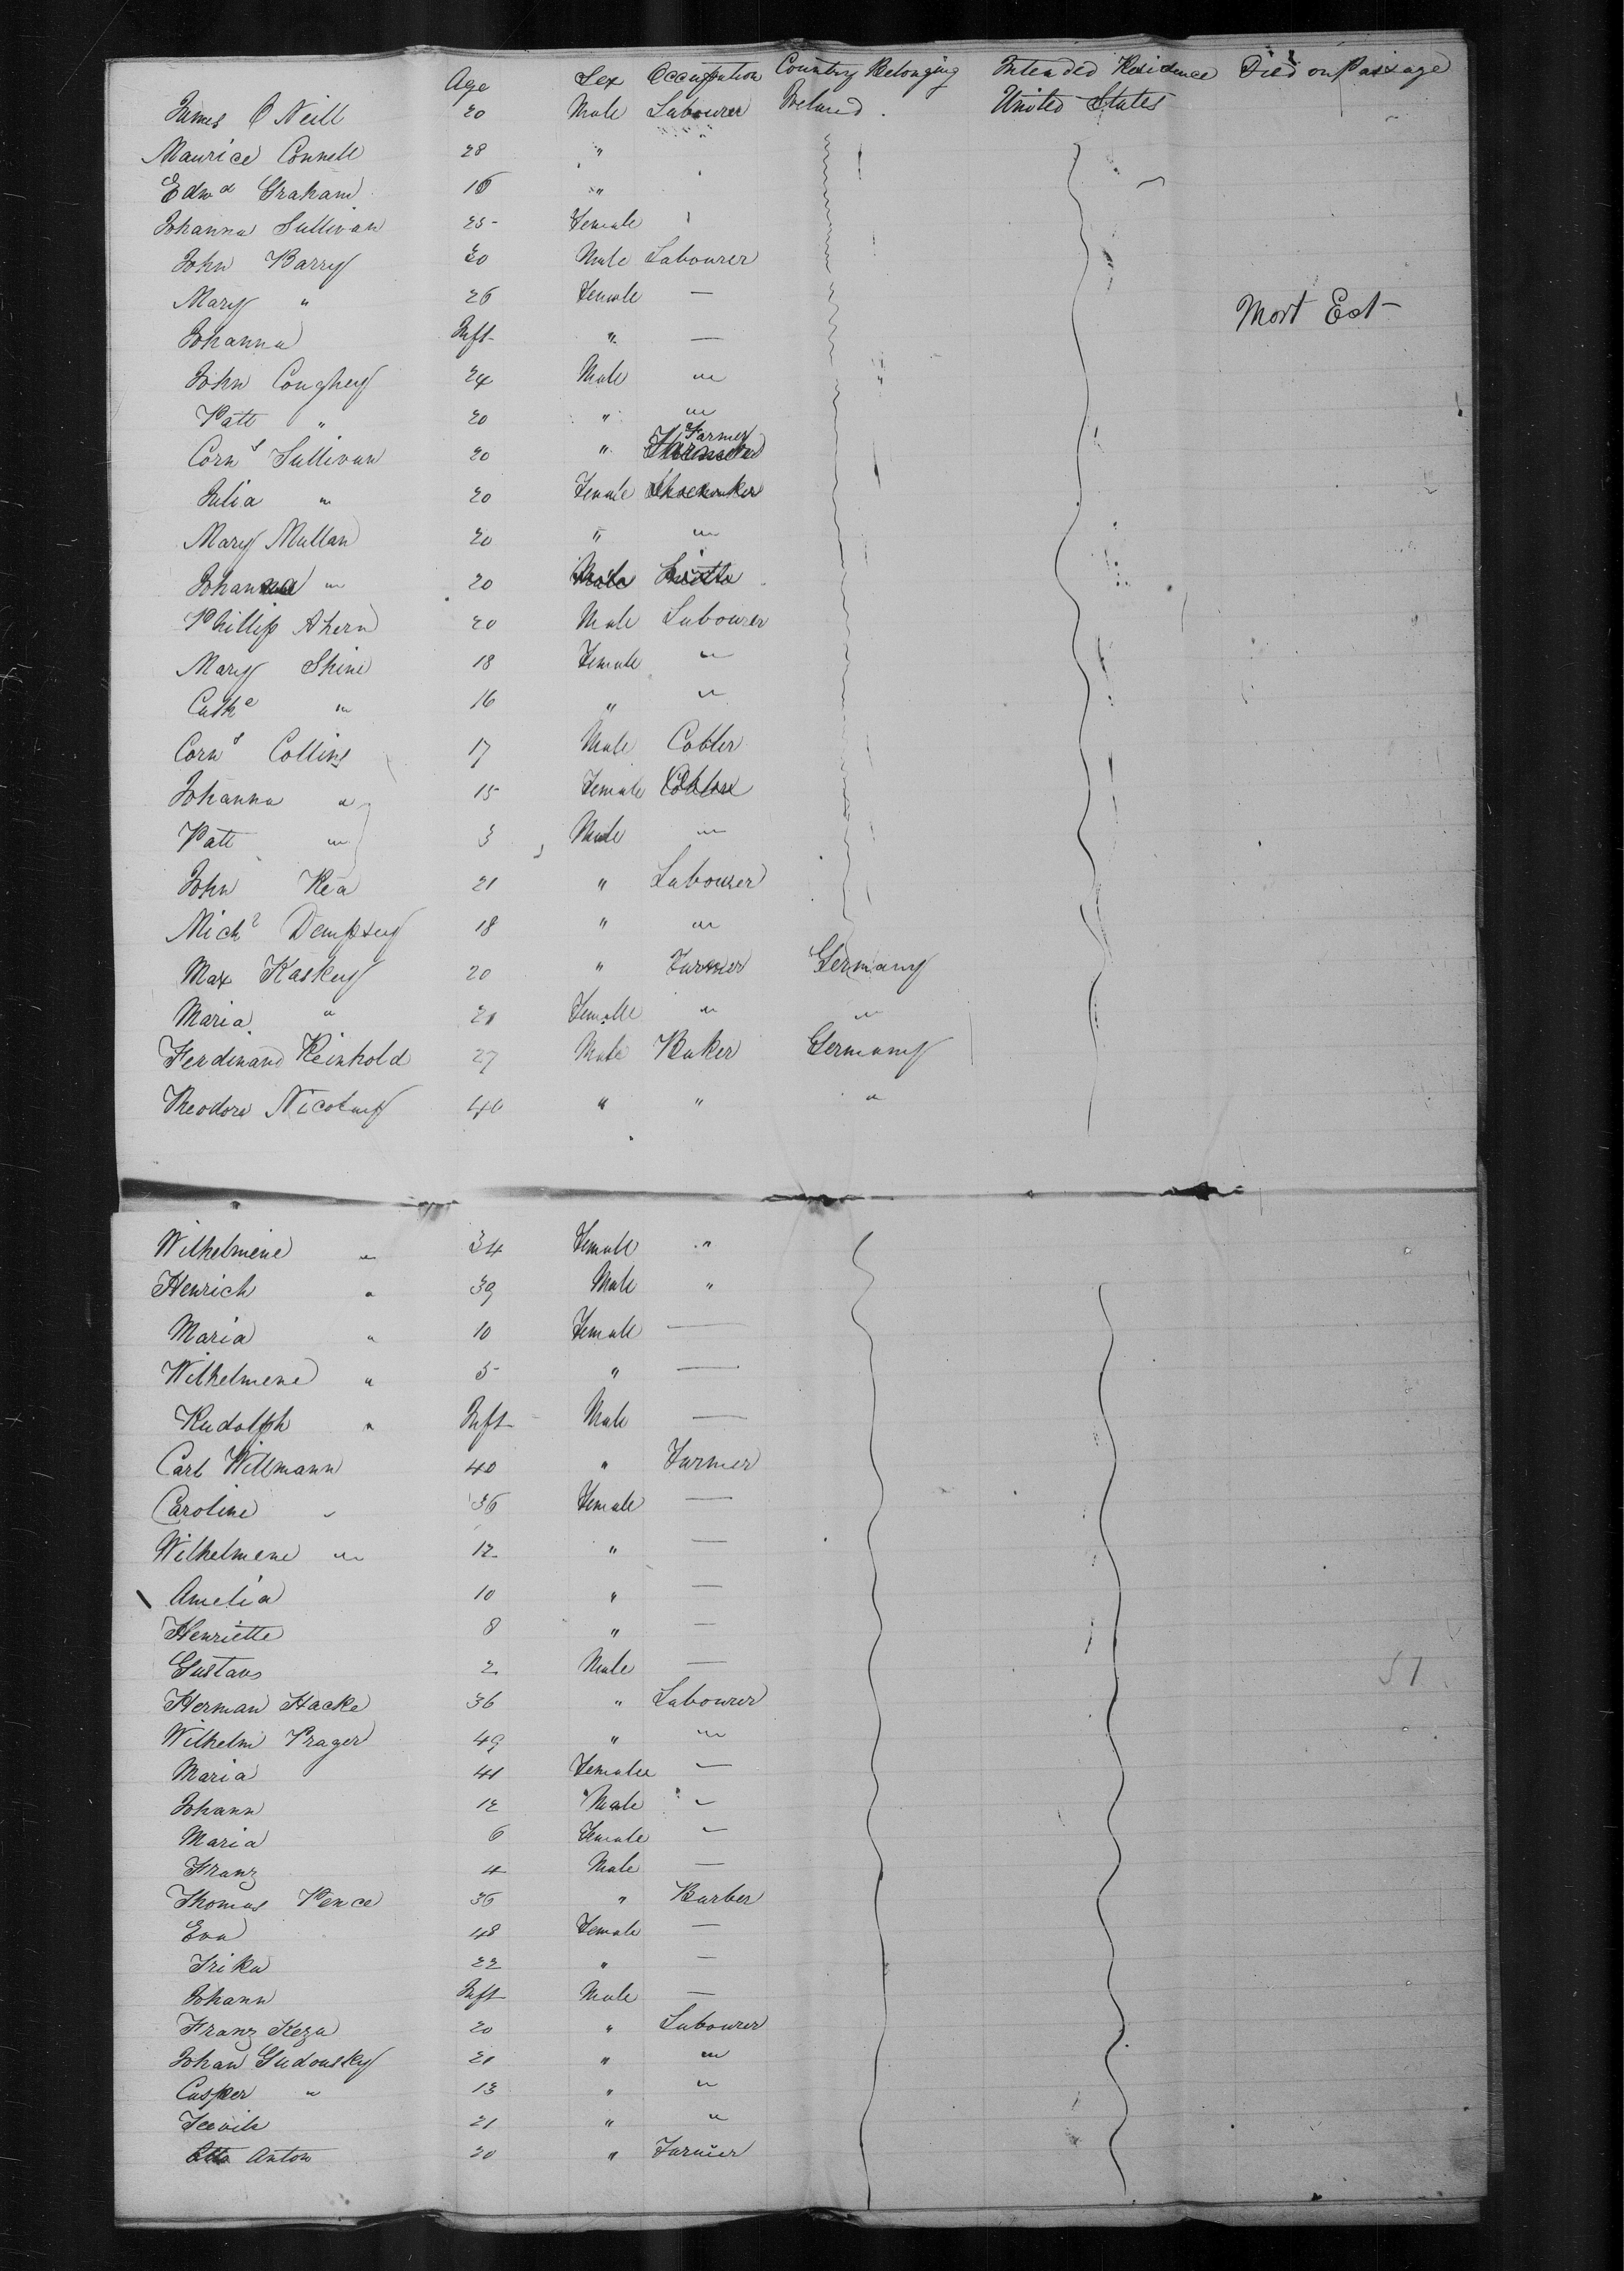 Age Sex Occupation Country Belonging Intended Residence Died on Passage
James O Neill 20 Male Labourer Ireland. United States
Maurice Connell 28 "
Edwd Graham 16 "
Johanna Sullivan 25 Female
John Barry 30 Male Labourer
Mary " 26 Female —
Mort Est
Johanna Inft " —
John Coughey 24 Male "
Patt " 20 " "
Corns Sullivan 20 " Farmer
Julia " 20 Female Shoemaker
Mary Mullan 20 " "
Johanna " 20
Phillip Ahern 20 Male Labourer
Mary Shine 18 Female "
Cathe " 16 " "
Corns Collins 17 Male Cobler
Johanna " 15 Female Cobler
Patt " 3 Male "
John Rea 21 " Labourer
Michl Dempsey 18 " "
Max Kaskey 20 " Farmer Germany
Maria " 21 Female " "
Ferdinand Reinhold 27 Male Baker Germany
Theodore Nicolauf 40 " " "
Wilhelmene " 34 Female "
Henrich " 39 Male "
Maria " 10 Female —
Wilhelmene " 5 " —
Rudolph " Inft Male —
Carl Willmann 40 " Farmer
Caroline " 36 Female —
Wilhelmene " 12 " —
Amelia 10 " —
Henriette 8 " —
Gustavs 2 Male —
51
Herman Hacke 36 " Labourer
Wilhelm Prager 49 " "
Maria 41 Female —
Johann 12 Male "
Maria 6 Female "
Franz 4 Male —
Thomas Pence 36 " Barber
Eva 48 Female —
Irika 22 " —
Johann Inft Male —
Franz Keza 20 " Labourer
Johan Gudousky 21 " "
Casper " 13 " "
21 " "
Anton 20 " Farmer